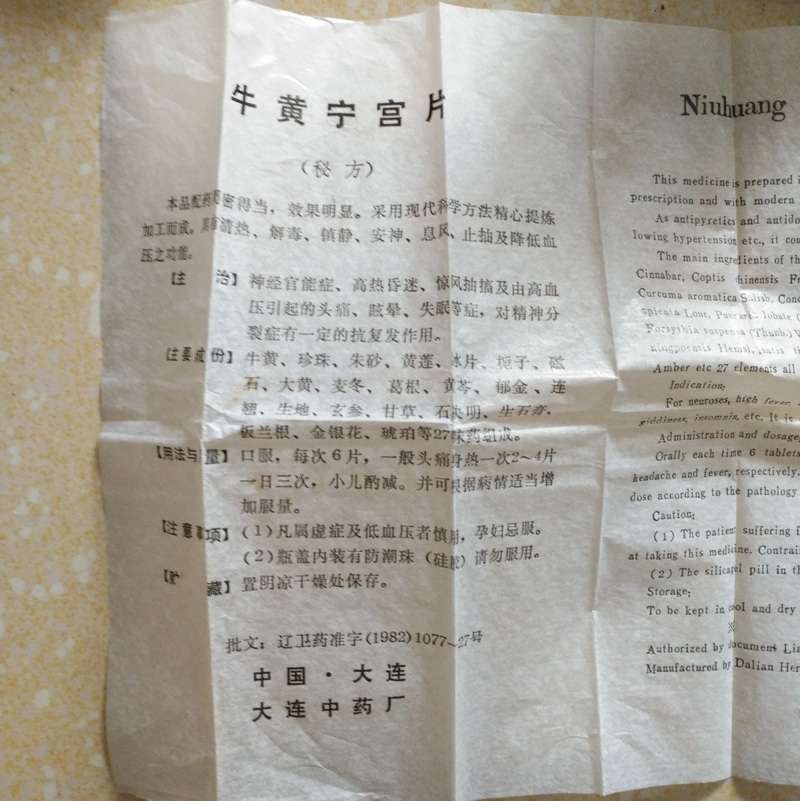 牛黄宁宫片
(秘方)
本品配药 密得当，效果明显。采用现代科学方法精心提炼
加工而成。 清热、解毒、镇静、安神、息风、止抽及降低血
压之功能。
【主 治】神经官能症、高热昏迷、惊风抽搐及由高血
压引起的头痛、眩晕、失眠等症，对精神分
裂症有一定的抗复发作用。
【主要成份】牛黄、珍珠、朱砂、黄莲、冰片、栀子、磁
石、大黄、麦冬、葛根、黄芩、郁金、连
翘、生地、玄参、甘草、石决明、生石膏、
板兰根、金银花、琥珀等27味药组成。
【用法与用量】口服，每次6片，一般头痛身热一次2～4片
一日三次，小儿酌减。并可根据病情适当增
加服量。
【注意事项】(1)凡属虚症及低血压者慎用，孕妇忌服。
(2)瓶盖内装有防潮珠（硅胶）请勿服用。
【贮 藏】置阴凉干燥处保存。
批文：辽卫药准字(1982)1077～27号
中国·大连
大连中药厂
Niuhuang
This medicine is prepared
prescription and with modern
As antipyretics and antido
lowing hypertension etc., it cou
The main ingredients of th
Cinnabar, Coptis chinensis F
Curcuma aromatica Salisb, Conc
spicata Lour, Puerara lobate (
Forsythia suspensa (Thunb.) V
Hemsl, Isatis
Amber etc 27 elements all
Indication;
For neuroses, high fever,
giddiness, insomnia, etc. It is
Administration and dosage;
Orally each time 6 tablets
headache and fever, respectively.
dose according to the pathology
Caution:
(1) The patient suffering f
at taking this medicine. Contrain
(2) The silicagel pill in th
Storage;
To be kept in cool and dry
※
Authorized by document Lia
Manufactured by Dalian Her